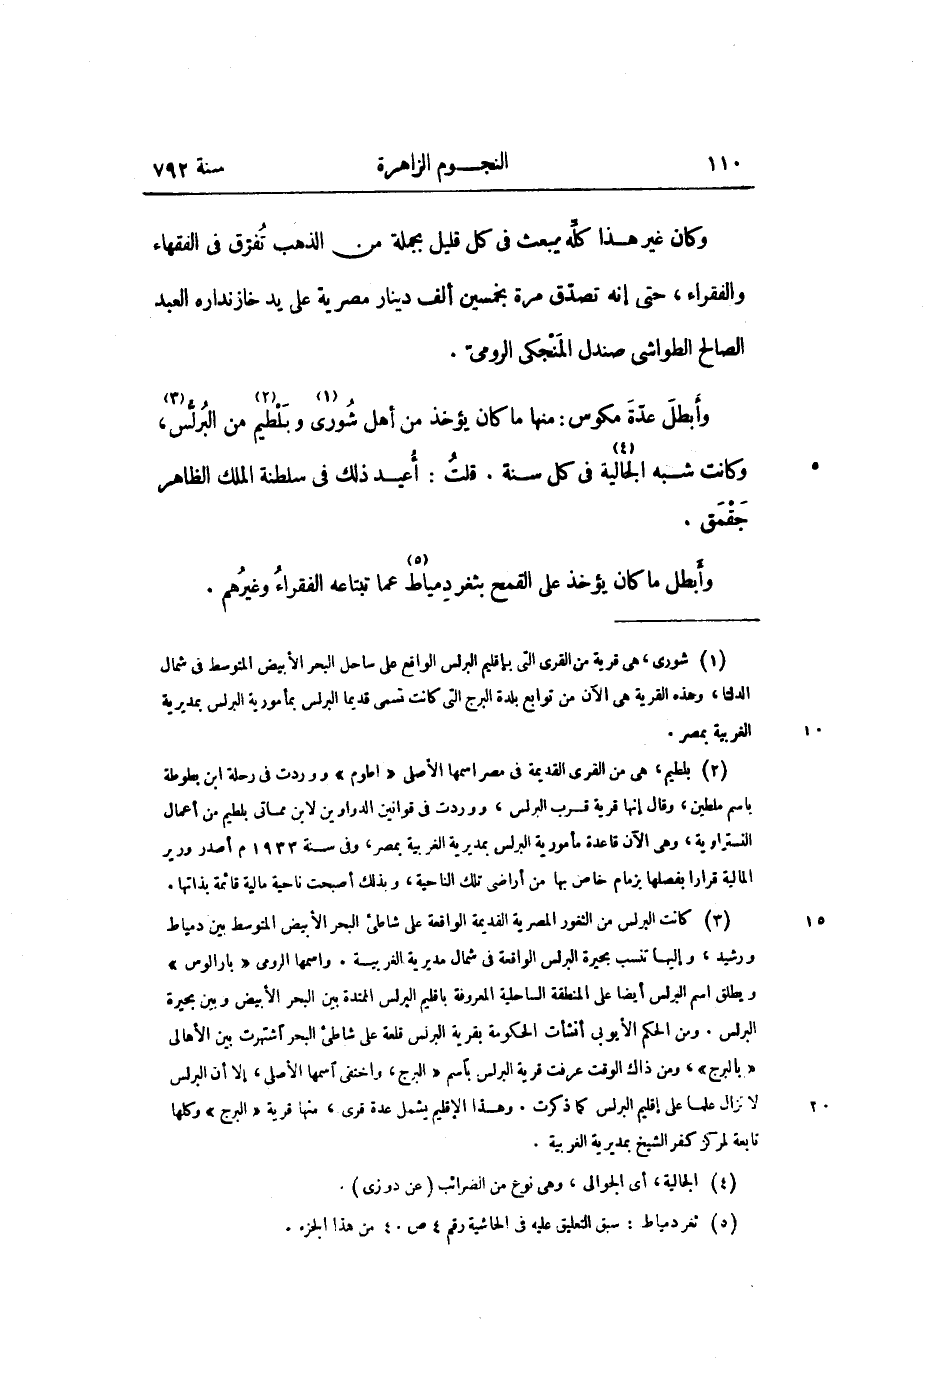 ١١٠ النجــوم الزاهرة سنة ٧٩٢
وكان غير هــذا كلّه يبعث فى كل قليل بجملة من الذهب تُفرّق فى الفقهاء
والفقراء ، حتى إنه تصدّق مرة بخمسين ألف دينار مصرية على يد خازنداره العبد
الصالح الطواشى صندل المَنْجكى الرومىّ .
وأَبطلَ عدّةَ مكوس : منها ما كان يؤخذ من أهل شُورى (١) و بَلْطيم (٢) من البُرلُّس (٣) ،
وكانت شــبه الجالية (٤) فى كل ســنة . قلتُ : أُعيــد ذلك فى سلطنة الملك الظاهر ٥
جَقْمَق .
وأَبطل ما كان يؤخذ على القمح بثغر دِمياط (٥) عما تبتاعه الفقراءُ وغيرُهم .
(١) شورى ، هى قرية من القرى التى بإقليم البرلس الواقع على ساحل البحر الأبيض المتوسط فى شمال
الدلتا ، وهذه القرية هى الآن من توابع بلدة البرج التى كانت تسمى قديما البرلس بمأمورية البرلس بمديرية
الغربية بمصر . ١٠
(٢) بلطيم ، هى من القرى القديمة فى مصر اسمها الأصلى « اطوم » ووردت فى رحلة ابن بطوطة
باسم ملطين ، وقال إنها قرية قــرب البرلس ، ووردت فى قوانين الدواوين لابن ممــاتى بلطيم من أعمال
النستراوية ، وهى الآن قاعدة مأمورية البرلس بمديرية الغربية بمصر ، وفى ســنة ١٩٣٣ م أصدر وزير
المالية قرارا بفصلها بزمام خاص بها من أراضى تلك الناحية ، وبذلك أصبحت ناحية مالية قائمة بذاتها .
(٣) كانت البرلس من الثغور المصرية القديمة الواقعة على شاطئ البحر الأبيض المتوسط بين دمياط ١٥
ورشيد ، وإليهــا تنسب بحيرة البرلس الواقعة فى شمال مديرية الغربيــة . واسمها الرومى « بارالوس »
ويطلق اسم البرلس أيضا على المنطقة الساحلية المعروفة باقليم البرلس الممتدة بين البحر الأبيض وبين بحيرة
البرلس . ومن الحكم الأيوبى أنشأت الحكومة بقرية البرلس قلعة على شاطئ البحر آشتهرت بين الأهالى
« بالبرج » ، ومن ذاك الوقت عرفت قرية البرلس بآسم « البرج ، واختفى آسمها الأصلى ، إلا أن البرلس
لا تزال علمــا على إقليم البرلس كما ذكرت . وهــذا الإقليم يشمل عدة قرى ، منها قرية « البرج » وكلها ٢٠
تابعة لمركز كفر الشيخ بمديرية الغربية .
(٤) الجالية ، أى الجوالى ، وهى نوع من الضرائب ( عن دوزى ) .
(٥) ثغر دمياط : سبق التعليق عليه فى الحاشية رقم ٤ ص ٤٠ من هذا الجزء .